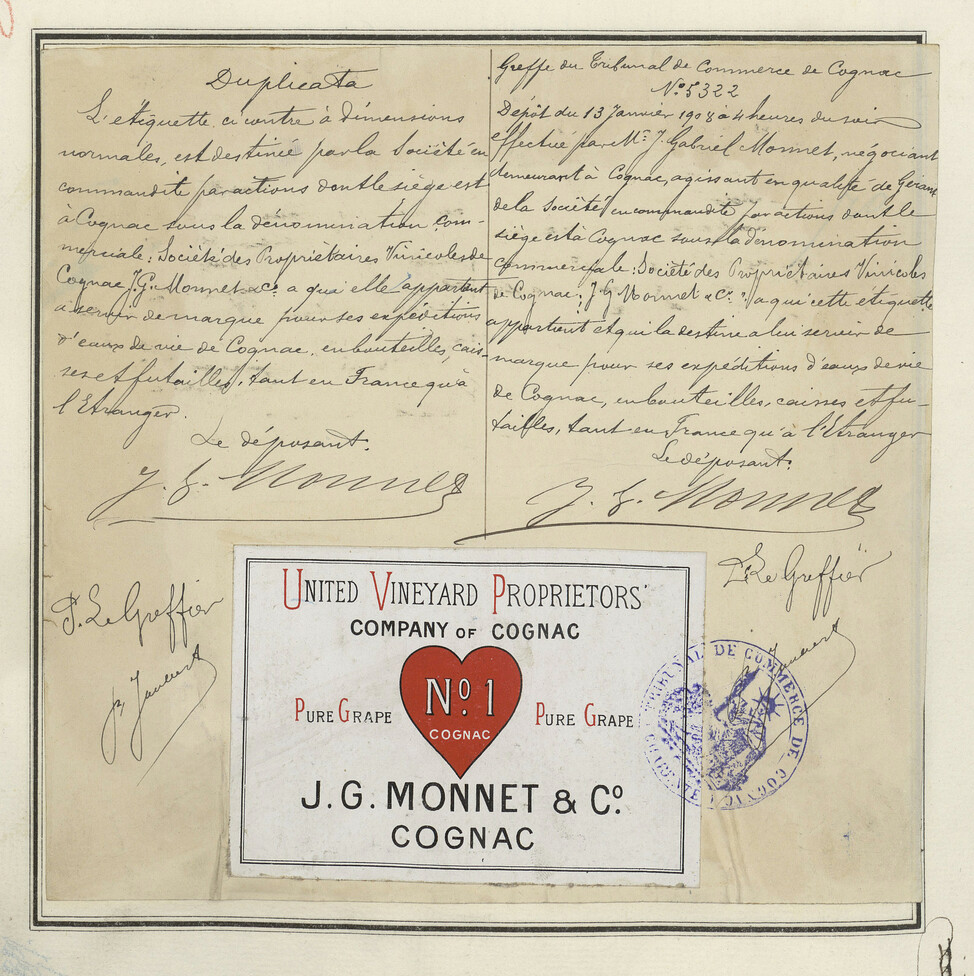 Duplicata
L'étiquette ci contre à dimensions
normales, est destinée par la Société en
commandite par actions dont le siège est
à Cognac sous la dénomination com-
merciale: Société des Propriétaires Vinicoles de
Cognac J. G. Monnet & Co. a qui elle appartient
à servir de marque pour ses expéditions
d'eaux de vie de Cognac, en bouteilles, cais-
ses et futailles, tant en France qu'à
l'Etranger.
Le déposant.
J. G. Monnet
P. Le Greffier
Greffe du Tribunal de Commerce de Cognac
No. 5322
Dépôt du 13 Janvier 1908 à 4 heures du soir
effectué par Mr. J. Gabriel Monnet, négociant
demeurant à Cognac, agissant en qualité de Gérant
de la Société en commandite par actions dont le
siège est à Cognac sous la dénomination
commerciale: Société des Propriétaires Vinicoles
de Cognac; J G Monnet & Co. a qui cette étiquette
appartient et qui la destine a lui servir de
marque pour ses expéditions d'eaux de vie
de Cognac, en bouteilles, caisses et fu-
tailles, tant en France qu'à l'Etranger
Le déposant.
J. G. Monnet
P. Le Greffier
UNITED VINEYARD PROPRIETORS'
COMPANY OF COGNAC
No. 1
COGNAC
PURE GRAPE
PURE GRAPE
J. G. MONNET & Co.
COGNAC
TRIBUNAL DE COMMERCE DE COGNAC
CHARENTE